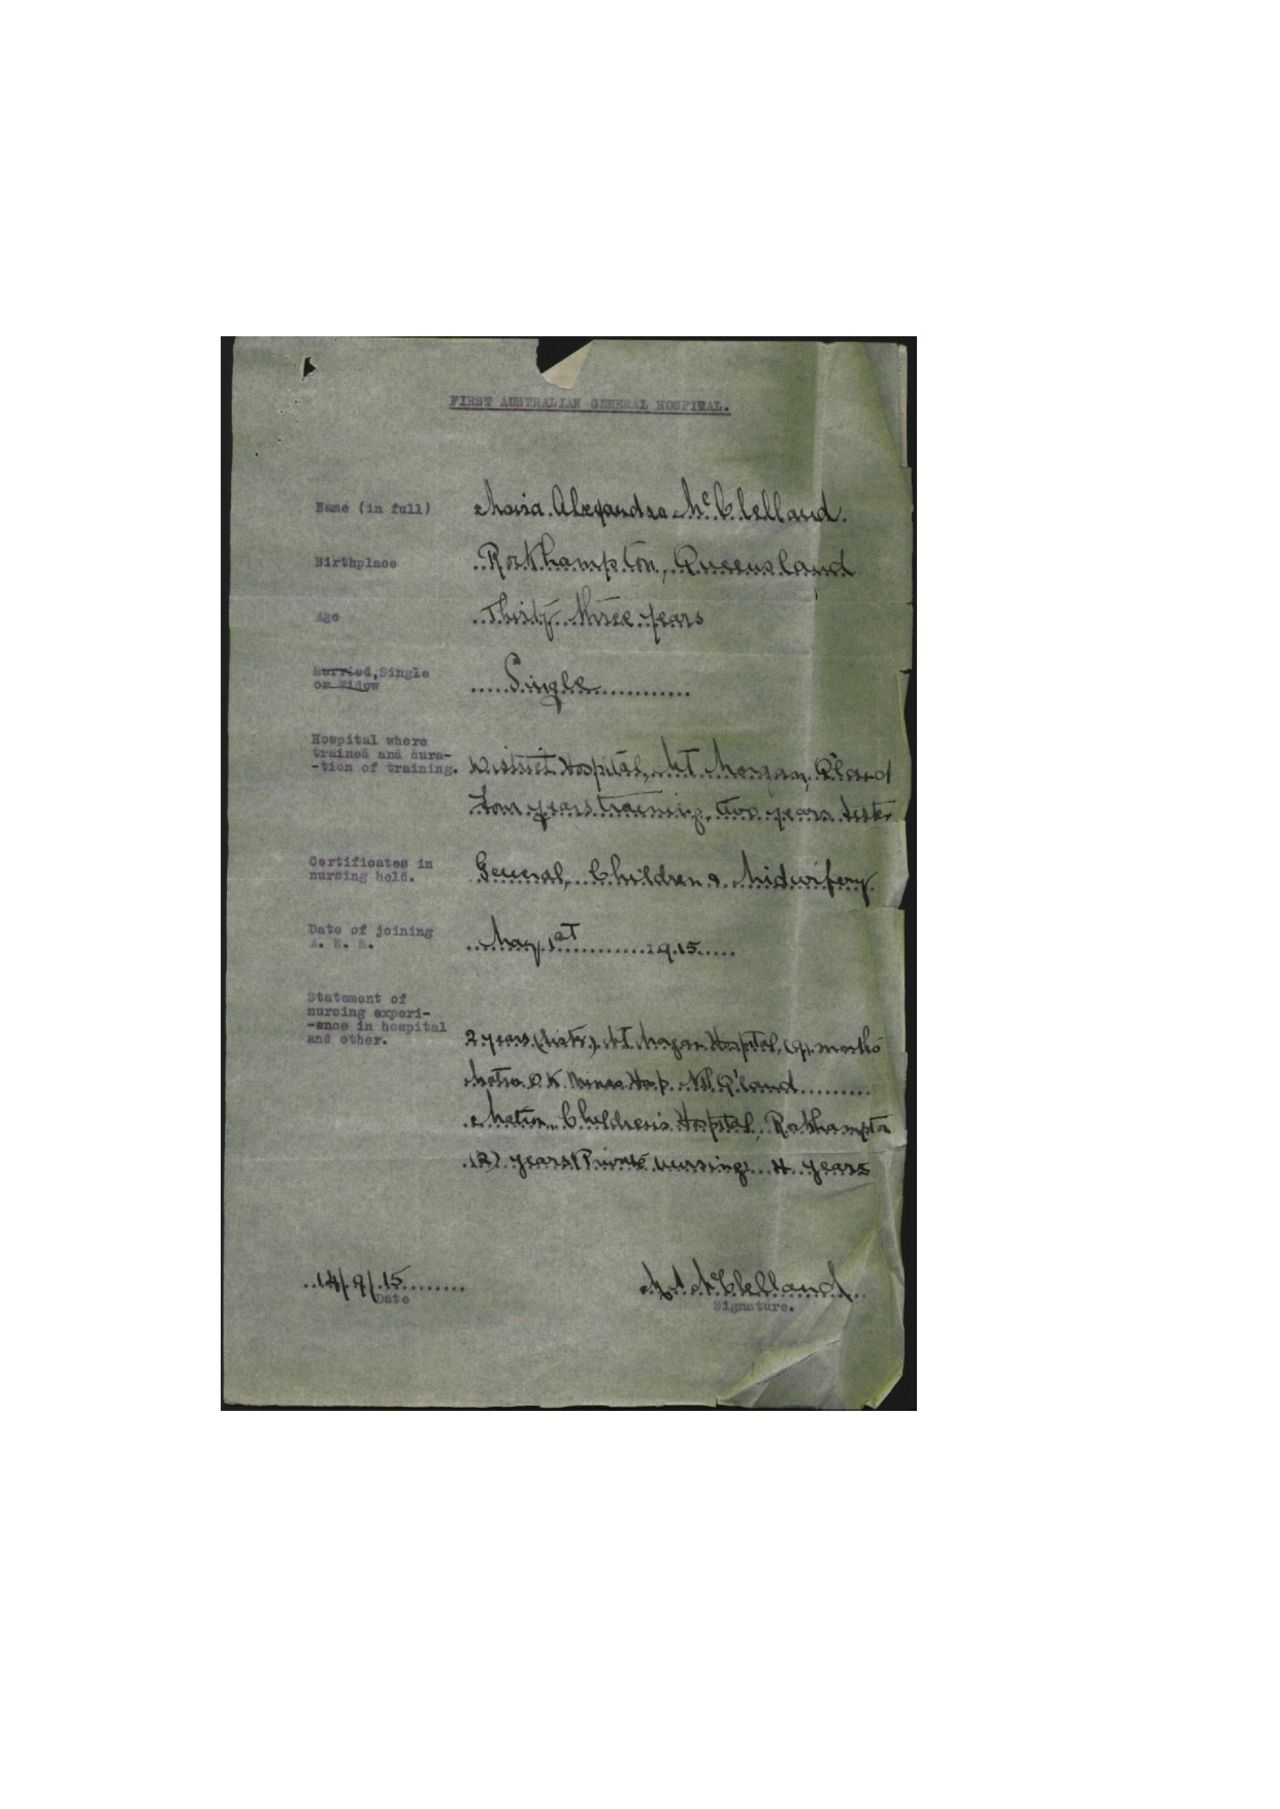 FIRST AUSTRALIAN GENERAL HOSPITAL.
Name (in full) Maria Alexandra McClelland.
Birthplace Rockhampton, Queensland
Age Thirty three years
Married, Single
or Widow Single
Hospital where
trained and dura-
-tion of training. District Hospital, Mt Morgan, Q'land
Four years training, two years
Certificates in
nursing held. General, Children & Midwifery.
Date of joining
A. N. S. May 1st 1915
Statement of
nursing experi-
-ence in hospital
and other.
2 years Mt Morgan Hospital, (9) months
Matron O K Mines Hosp. Nth Q'land
Matron, Children's Hospital, Rockhampton
(2) years Private nursing, 4 years
14/9/15 M A McClelland
Date Signature.